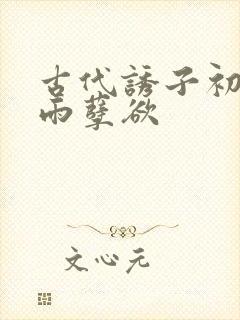 古代誘子初
雨孽欲
文心元